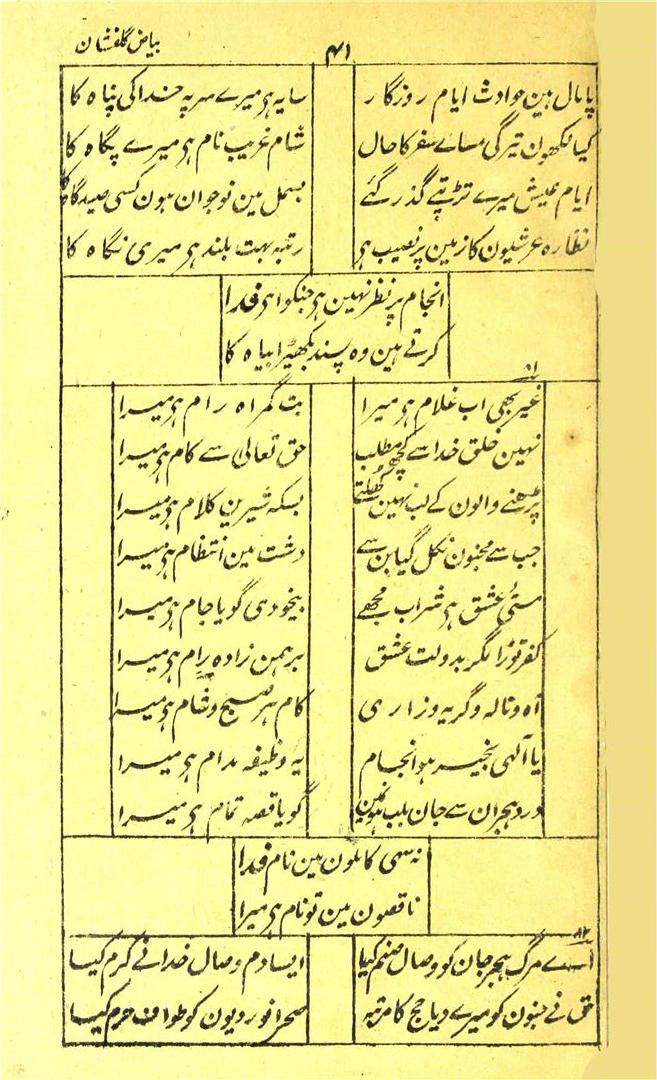 بیاض گلفشان
۴۱
پامال ہین حوادث ایام روزگار سایہ ہی میرے سر پہ خدا کی پناہ کا
کیا لکھون تیرگی مساے سفر کا حال شام غریب نام ہی میرے پگاہ کا
ایام عیش میرے تڑپتے گذر گئے بسمل مین نوجوان ہون کسی صیدگاہ کا
نظارہ عرشیون کا زمین پر نصیب ہی رتبہ بہت بلند ہی میری نگاہ کا
انجام پر نظر نہین ہی جنکو ای فدا
کرتے ہین وہ پسند بکھیڑا بیاہ کا
۸۱
غیر بھی اب غلام ہی میرا بت گمراہ رام ہی میرا
نہین خلق خدا سے کچھ مطلب حق تعالی سے کام ہی میرا
پڑھنے والون کے لب نہین کھلتے بسکہ شیرین کلام ہی میرا
جب سے مجنون نکل گیا بن سے دشت مین انتظام ہی میرا
مستی عشق ہی شراب مجھے بیخودی گویا جام ہی میرا
کفر توڑا مگر بدولت عشق برہمن زادہ رام ہی میرا
آہ و نالہ و گریہ و زاری کام ہر صبح و شام ہی میرا
یا الہی بخیر ہو انجام یہ وظیفہ مدام ہی میرا
درد ہجران سے جان بلب ہون مین گویا قصہ تمام ہی میرا
نہ سہی کاملون مین نام فدا
ناقصون مین تو نام ہی میرا
۸۲
اے مرگ ہجر جان کو وصال صنم کیا ایسا دم وصال خدا نے کرم کیا
حق نے جنون کو میرے دیا حج کا مرتبہ صحرا نوردیون کو طواف حرم کیا